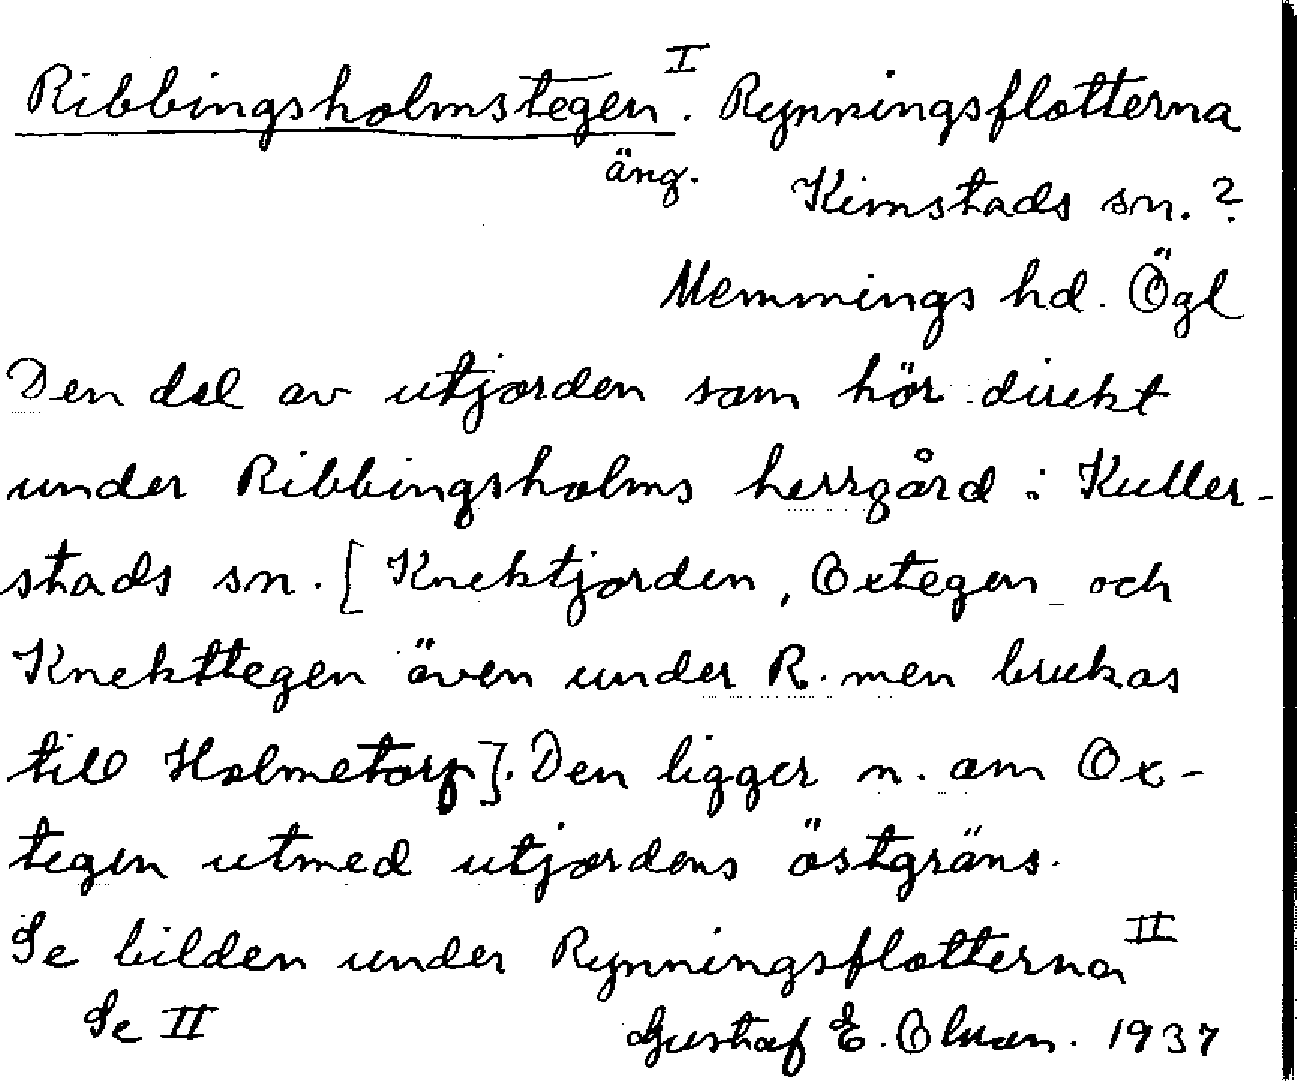 Ribbingsholmstegen I. Rynningsflatterna
äng. Kimstads sn. ?
Memmings hd. Ögl
Den del av utjorden som hör direkt
under Ribbingsholms herrgård i Kuller-
stads sn. [Knektjorden, Oxtegen och
Knekttegen även under R. men brukas
till Holmetorp]. Den ligger n. om Ox-
tegen utmed utjordens östgräns.
Se bilden under Rynningsflatterna II
Se II Gustaf E. Olman. 1937